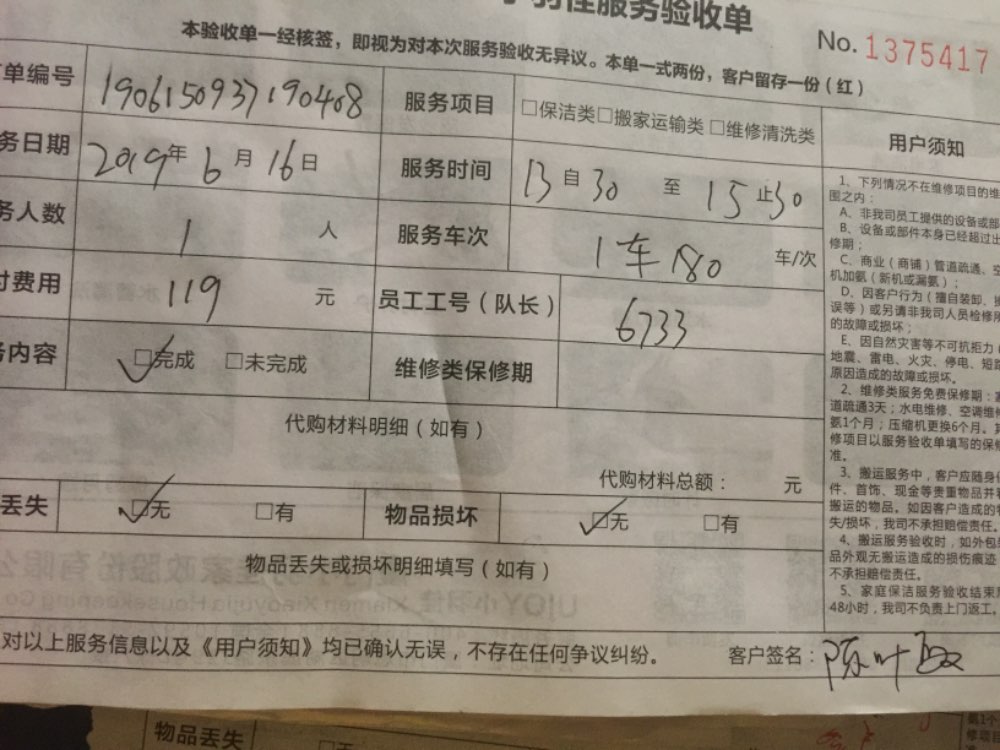 羽佳服务验收单
No. 1375417
本验收单一经核签，即视为对本次服务验收无异议。本单一式两份，客户留存一份（红）
单编号 1906150937190408 服务项目 □保洁类□搬家运输类 □维修清洗类
务日期 2019年 6月 16日 服务时间 13自30 至 15止30
务人数 1 人 服务车次 1车180 车/次
付费用 119 元 员工工号（队长） 6733
务内容 ☑完成 □未完成 维修类保修期
代购材料明细（如有）
代购材料总额： 元
丢失 ☑无 □有 物品损坏 ☑无 □有
物品丢失或损坏明细填写（如有）
对以上服务信息以及《用户须知》均已确认无误，不存在任何争议纠纷。 客户签名：陈叶
用户须知
1、下列情况不在维修项目的维
围之内：
A、非我司员工提供的设备或部
B、设备或部件本身已经超过出
修期；
C、商业（商铺）管道疏通、空
机加氨（新机或漏氨）；
D、因客户行为（擅自装卸、
误等）或另请非我司人员检修所
的故障或损坏；
E、因自然灾害等不可抗拒力（
地震、雷电、火灾、停电、短路
原因造成的故障或损坏。
2、维修类服务免费保修期：
道疏通3天；水电维修、空调维
氨1个月；压缩机更换6个月。其
修项目以服务验收单填写的保修
准。
3、搬运服务中，客户应随身
件、首饰、现金等贵重物品并
搬运的物品。如因客户造成的物
失/损坏，我司不承担赔偿责任。
4、搬运服务验收时，如外包
品外观无搬运造成的损伤痕迹
不承担赔偿责任。
5、家庭保洁服务验收结束后
48小时，我司不负责上门返工。
物品丢失 □无